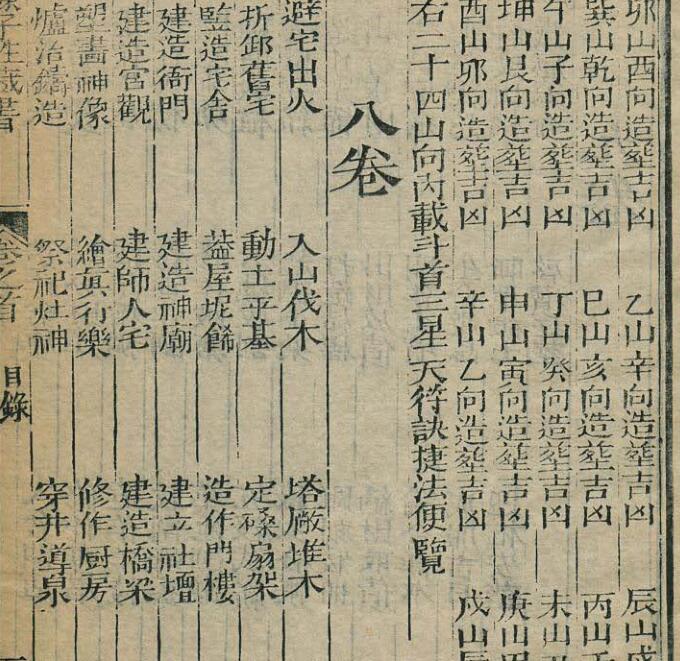 卯山酉向造塟吉凶 乙山辛向造塟吉凶 辰山戌
巽山乾向造塟吉凶 巳山亥向造塟吉凶 丙山壬
午山子向造塟吉凶 丁山癸向造塟吉凶 未山丑
坤山艮向造塟吉凶 申山寅向造塟吉凶 庚山甲
酉山卯向造塟吉凶 辛山乙向造塟吉凶 戌山辰
右二十四山向內載斗首三星天符訣捷法便覽
八卷
避宅出火 入山伐木 塔厰堆木
折卸舊宅 動土平基 定磉扇架
監造宅舍 葢屋坭餙 造作門樓
建造衙門 建造神廟 建立社壇
建造宮觀 建師人宅 建造橋梁
塑畵神像 繪真行樂 修作厨房
爐冶鑄造 祭祀灶神 穿井導泉
卷之首 目錄